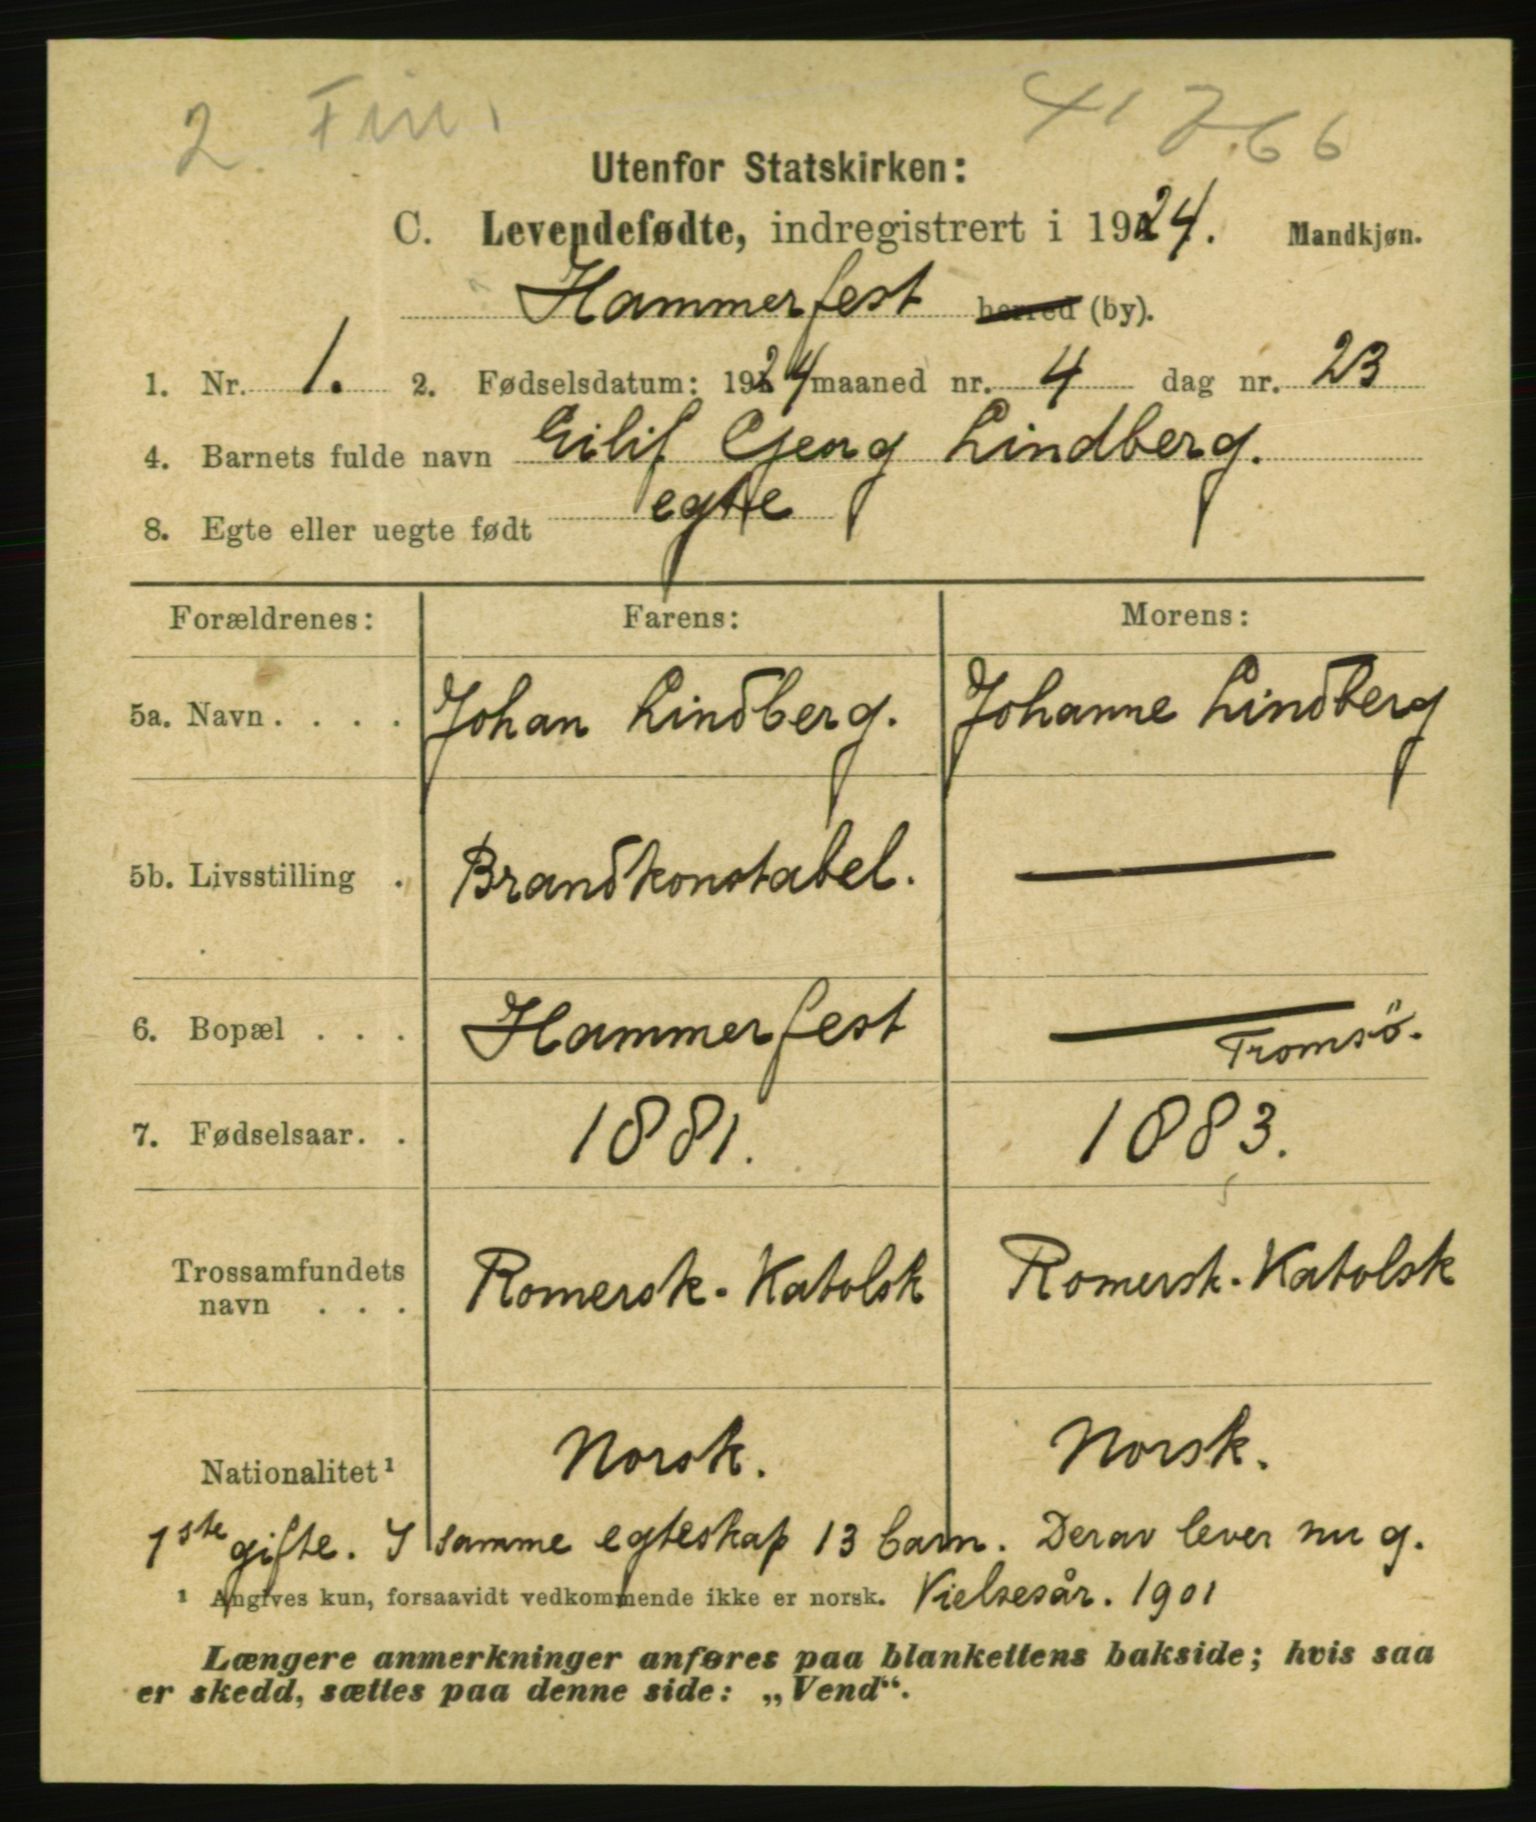 2 Fin.
66
Utenfor Statskirken:
C. Levendefødte, indregistrert i 1924. Mandkjøn.
Hammerfest herred (by).
1. Nr. 1. 2. Fødselsdatum: 1924 maaned nr. 4 dag nr. 23
4. Barnets fulde navn Eilif Georg Lindberg.
8. Egte eller uegte født egte
Forældrenes: Farens: Morens:
5a. Navn. . . . Johan Lindberg. Johanne Lindberg
5b. Livsstilling . Brandkonstabel. —
6. Bopæl . . . Hammerfest — Tromsö.
7. Fødselsaar. . 1881. 1883.
Trossamfundets
navn . . . Romersk-Katolsk Romersk-Katolsk
Nationalitet¹ Norsk. Norsk.
1ste gifte. I samme egteskap 13 barn. Derav lever nu 9.
¹ Angives kun, forsaavidt vedkommende ikke er norsk. Vielsesår. 1901
Længere anmerkninger anføres paa blankettens bakside; hvis saa
er skedd, sættes paa denne side: „Vend“.